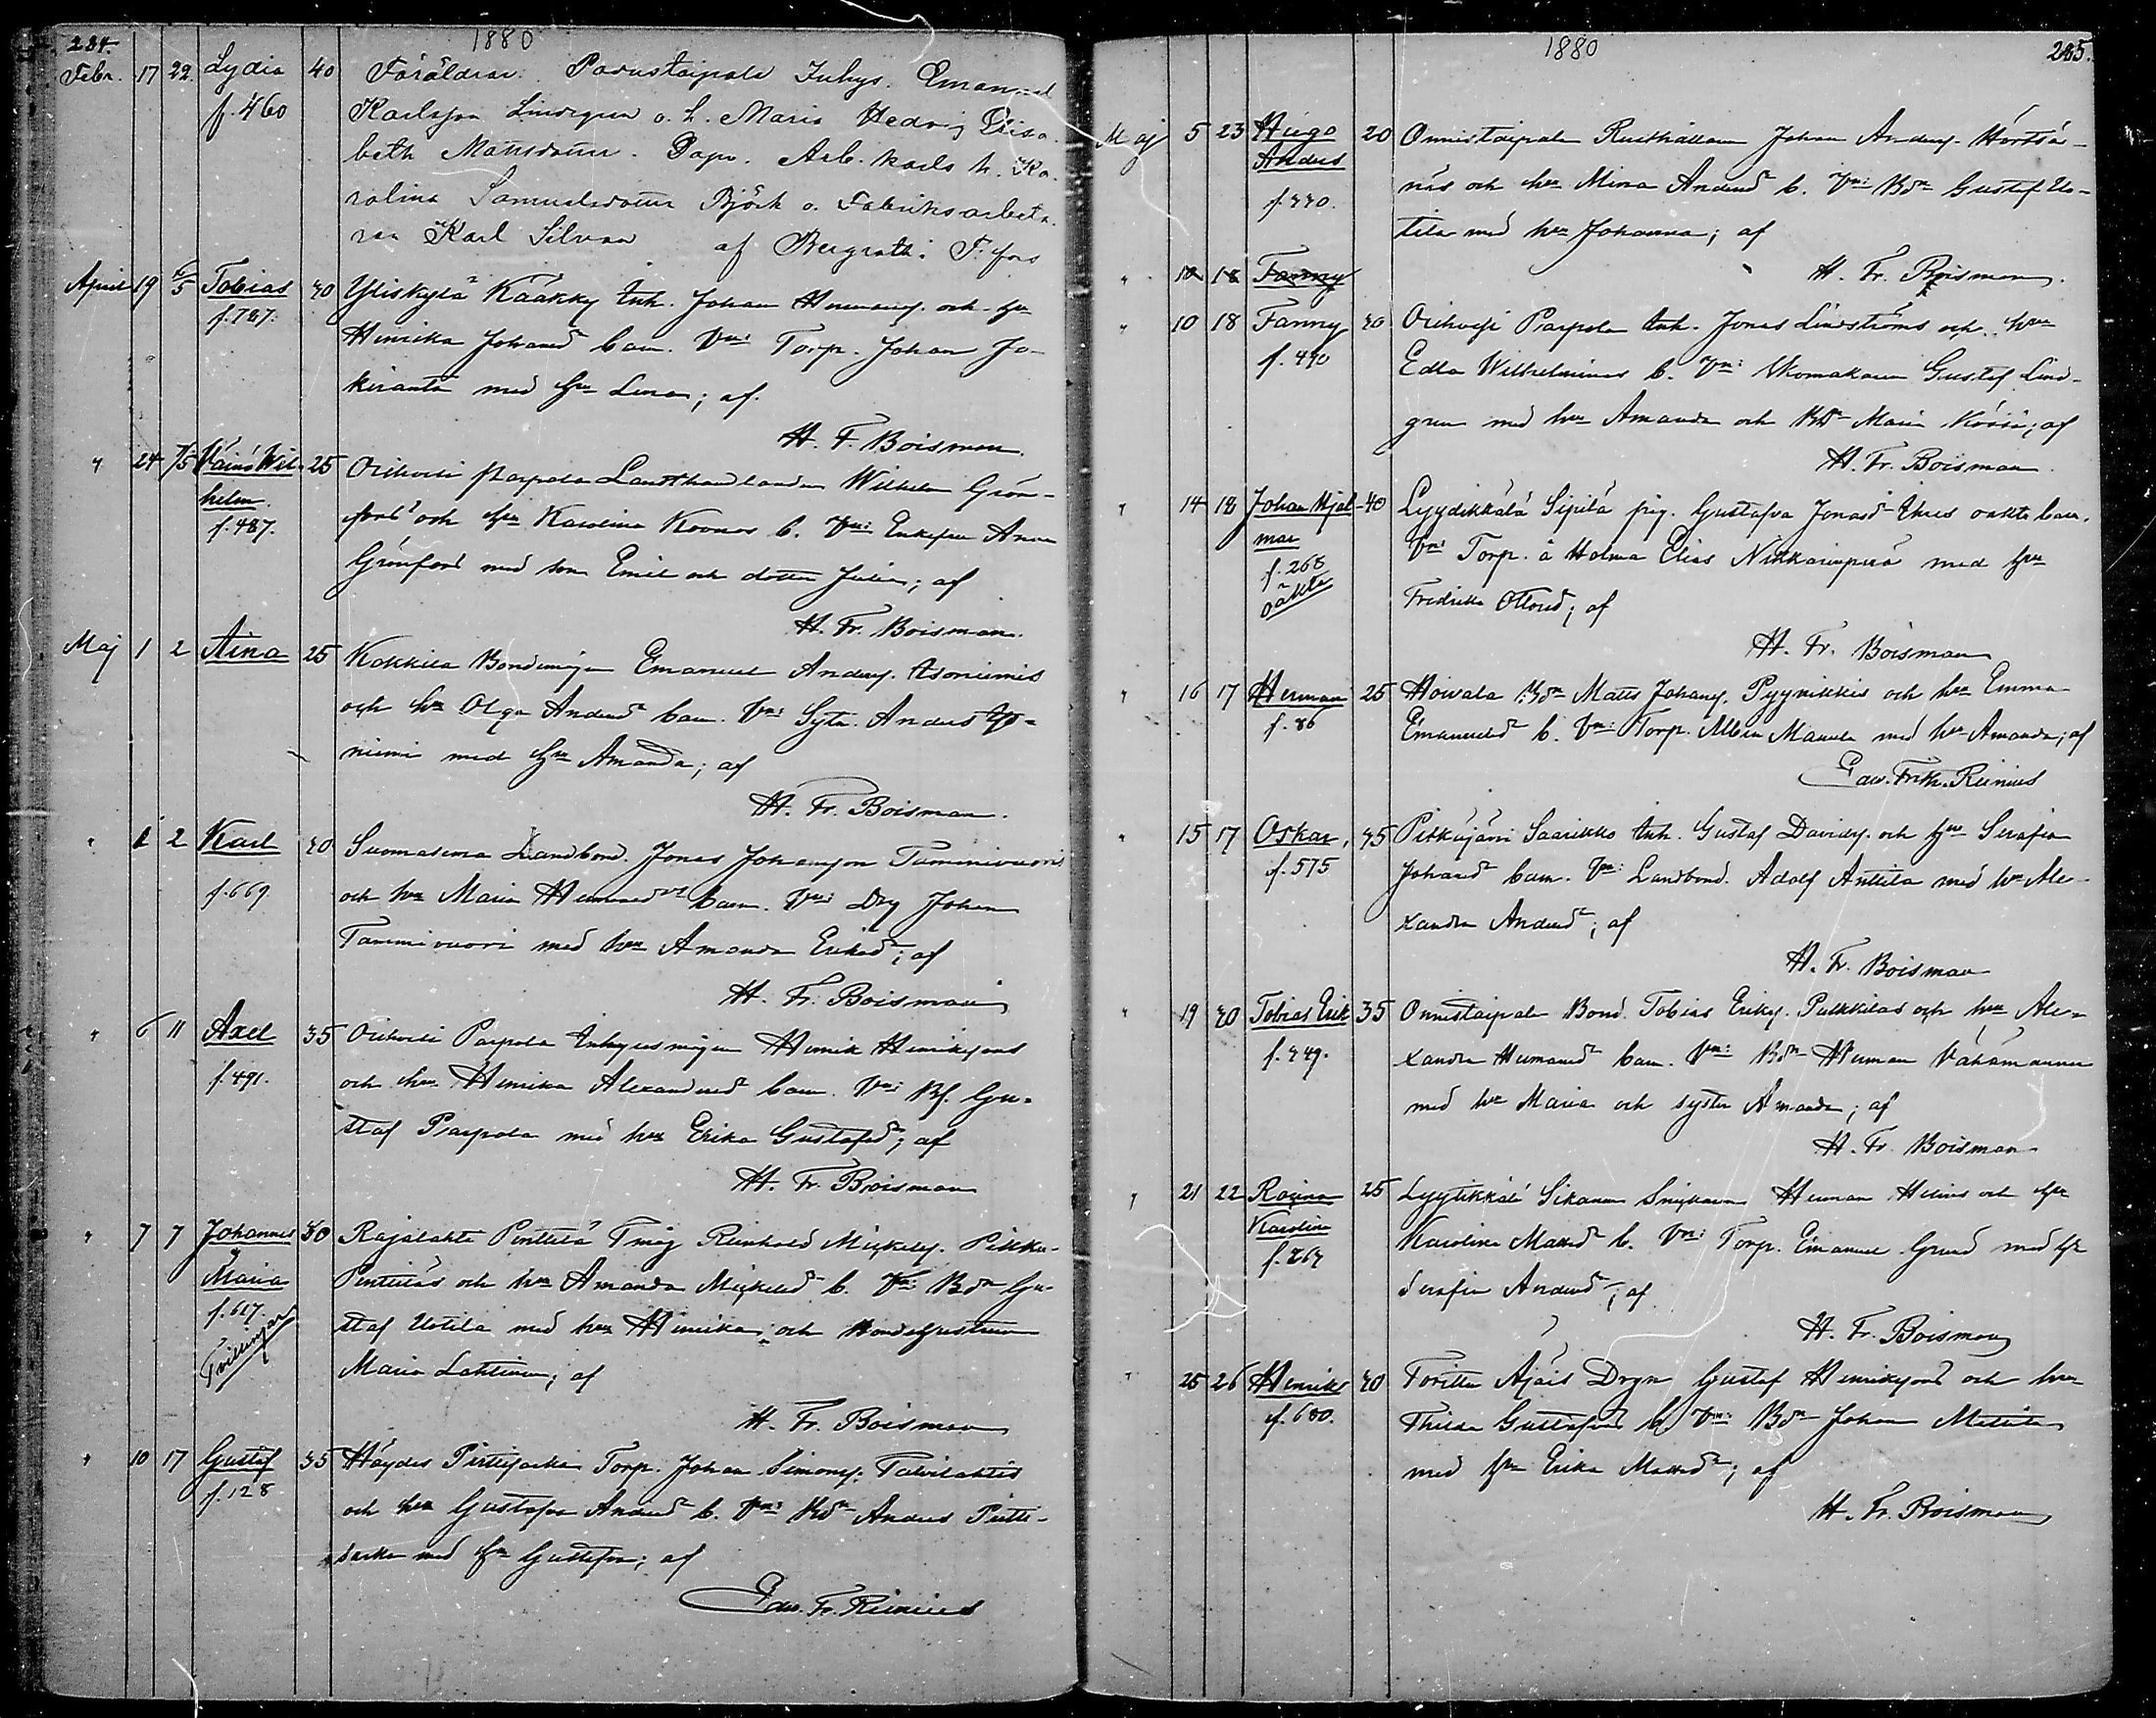 284.
1880
Febr. 17 22. Lydia 40 Föräldrar: Parustaipale Inhys. Emanuel
f. 460 Karlsson Lindegren o. h. Maria Hedvig Elisa-
beth Mattsdotter. Dopv. Arb. karls h. Ka-
rolina Samuelsdotter Björk o. Fabriksarbeta-
ren Karl Silvan af Bergroth i T:fors
April 19 5 Tobias 40 Yliskylä Kääkky Inh. Johan Hermans. och hu
f. 787. Henrika Johansd barn. Vn: Torp. Johan Jo-
kiranta med hu Lena; af
H. F. Boisman.
" 24 /5 Väinö Wil- 25 Orihvesi Parpola Landthandlanden Wilhelm Grön-
helm fors och hu Karolina b. Vn: Enkefru Anna
f. 487. Grönfors med son Emil och dotter Julia; af
H. Fr. Boisman.
Maj 1 2 Aina 25 Kokkila Bondemågen Emanuel Anders.
och hu Olga Andersd barn. Vn: Sytn. Anders
niemi med hu Amanda; af
H. Fr. Boisman.
" 1 2 Karl 40 Suomasema Landbond. Jonas Johansson Tammivuoris
f. 669. och hu Maria Hermansdr barn. Vn: Drg Johan
Tammivuori med hu Amanda Eriksd; af
H. Fr. Boisman
" 6 11 Axel 35 Orihvesi Parpola Inhysesmågen Henrik Henrikssons
f. 491. och hu Henrika Alexandersd barn. Vn: Gu-
staf Parpola med hu Erika Gustafsd; af
H. Fr. Boisman
" 7 7 Johannes 30 Rajalahti Penttilä Tmåg Reinhold Mickels. Pikku-
Maria Penttiläs och hu Amanda Mickelsd b. Vn: Bdn Gu-
f. 617. staf Uotila med hu Henrika; och
Tvillingar Maria Lahtinen; af
H. Fr. Boisman
" 10 17 Gustaf 35 Häydes Pirttisarka Torp. Johan Simons. Talvilahtis
f. 128 och hu Gustafva Andersd b. Vn: Bdn Anders Pirtti-
sarka med hu Gustafva; af
Edw. Fr. Reinius
1880
285.
Maj 5 23 Hugo 20 Onnistaipale Rusthållaren Johan Anders.
Anders näs och hu Mina Andersd b. Vn: Bdn Gustaf Uo-
f. 440. tila med hu Johanna; af
" 10 18 Fanny H. Fr. Boisman.
" 10 18 Fanny 40 Orihvesi Parpola Inh. Jonas Lindströms och hu
f. 490 Edla Wilhelminas b. Vn: Skomakaren Gustaf Lind-
gren med hu Amanda och Maria; af
H. Fr. Boisman.
" 14 18 Johan Hjal- 40 Lyydikkälä Sipilä pig. Gustafva Jonasd-thres oäkta barn.
mar Vn: Torp. å Holma Elias med hu
f. 268 Fredrika Ottosd; af
oäkta
H. Fr. Boisman
" 16 17 Herman 25 Hoivala Bdn Matts Johans. Pyynikkis och hu Emma
f. 86 Emanuelsd b. Vn: Torp. Albin Manula med hu Amanda; af
Edw. Frth. Reinius
" 15 17 Oskar, 45 Pitkäjärvi Saarikko Inh. Gustaf Davids. och hu Serafia
f. 575 Johansd barn. Vn: Landbond. Adolf Anttila med hu Ale-
xandra Andersd; af
H. Fr. Boisman
" 19 20 Tobias Erik 35 Onnistaipale Bond. Tobias Eriks. Pulkkilas och hu Ale-
f. 449. xandra Hermansd barn. Vn: Bdn Herman Vähämanna
med hu Maria och syster Amanda; af
H. Fr. Boisman
" 21 22 Rosina 25 Lyytikkälä Sikanen Snickaren Herman Helins och hu
Karolina Karolina Mattsd b. Vn: Torp. Emanuel Grund med hu
f. 267 Serafia Andersd; af
H. Fr. Boisman
" 25 26 Henriks 40 Torittu Äijäis Drgn Gustaf Henrikssons och hu
f. 680. Thilda Gustafsd b. Vn: Bdn Johan Mattila
med hu Erika Mattsd; af
H. Fr. Boisman